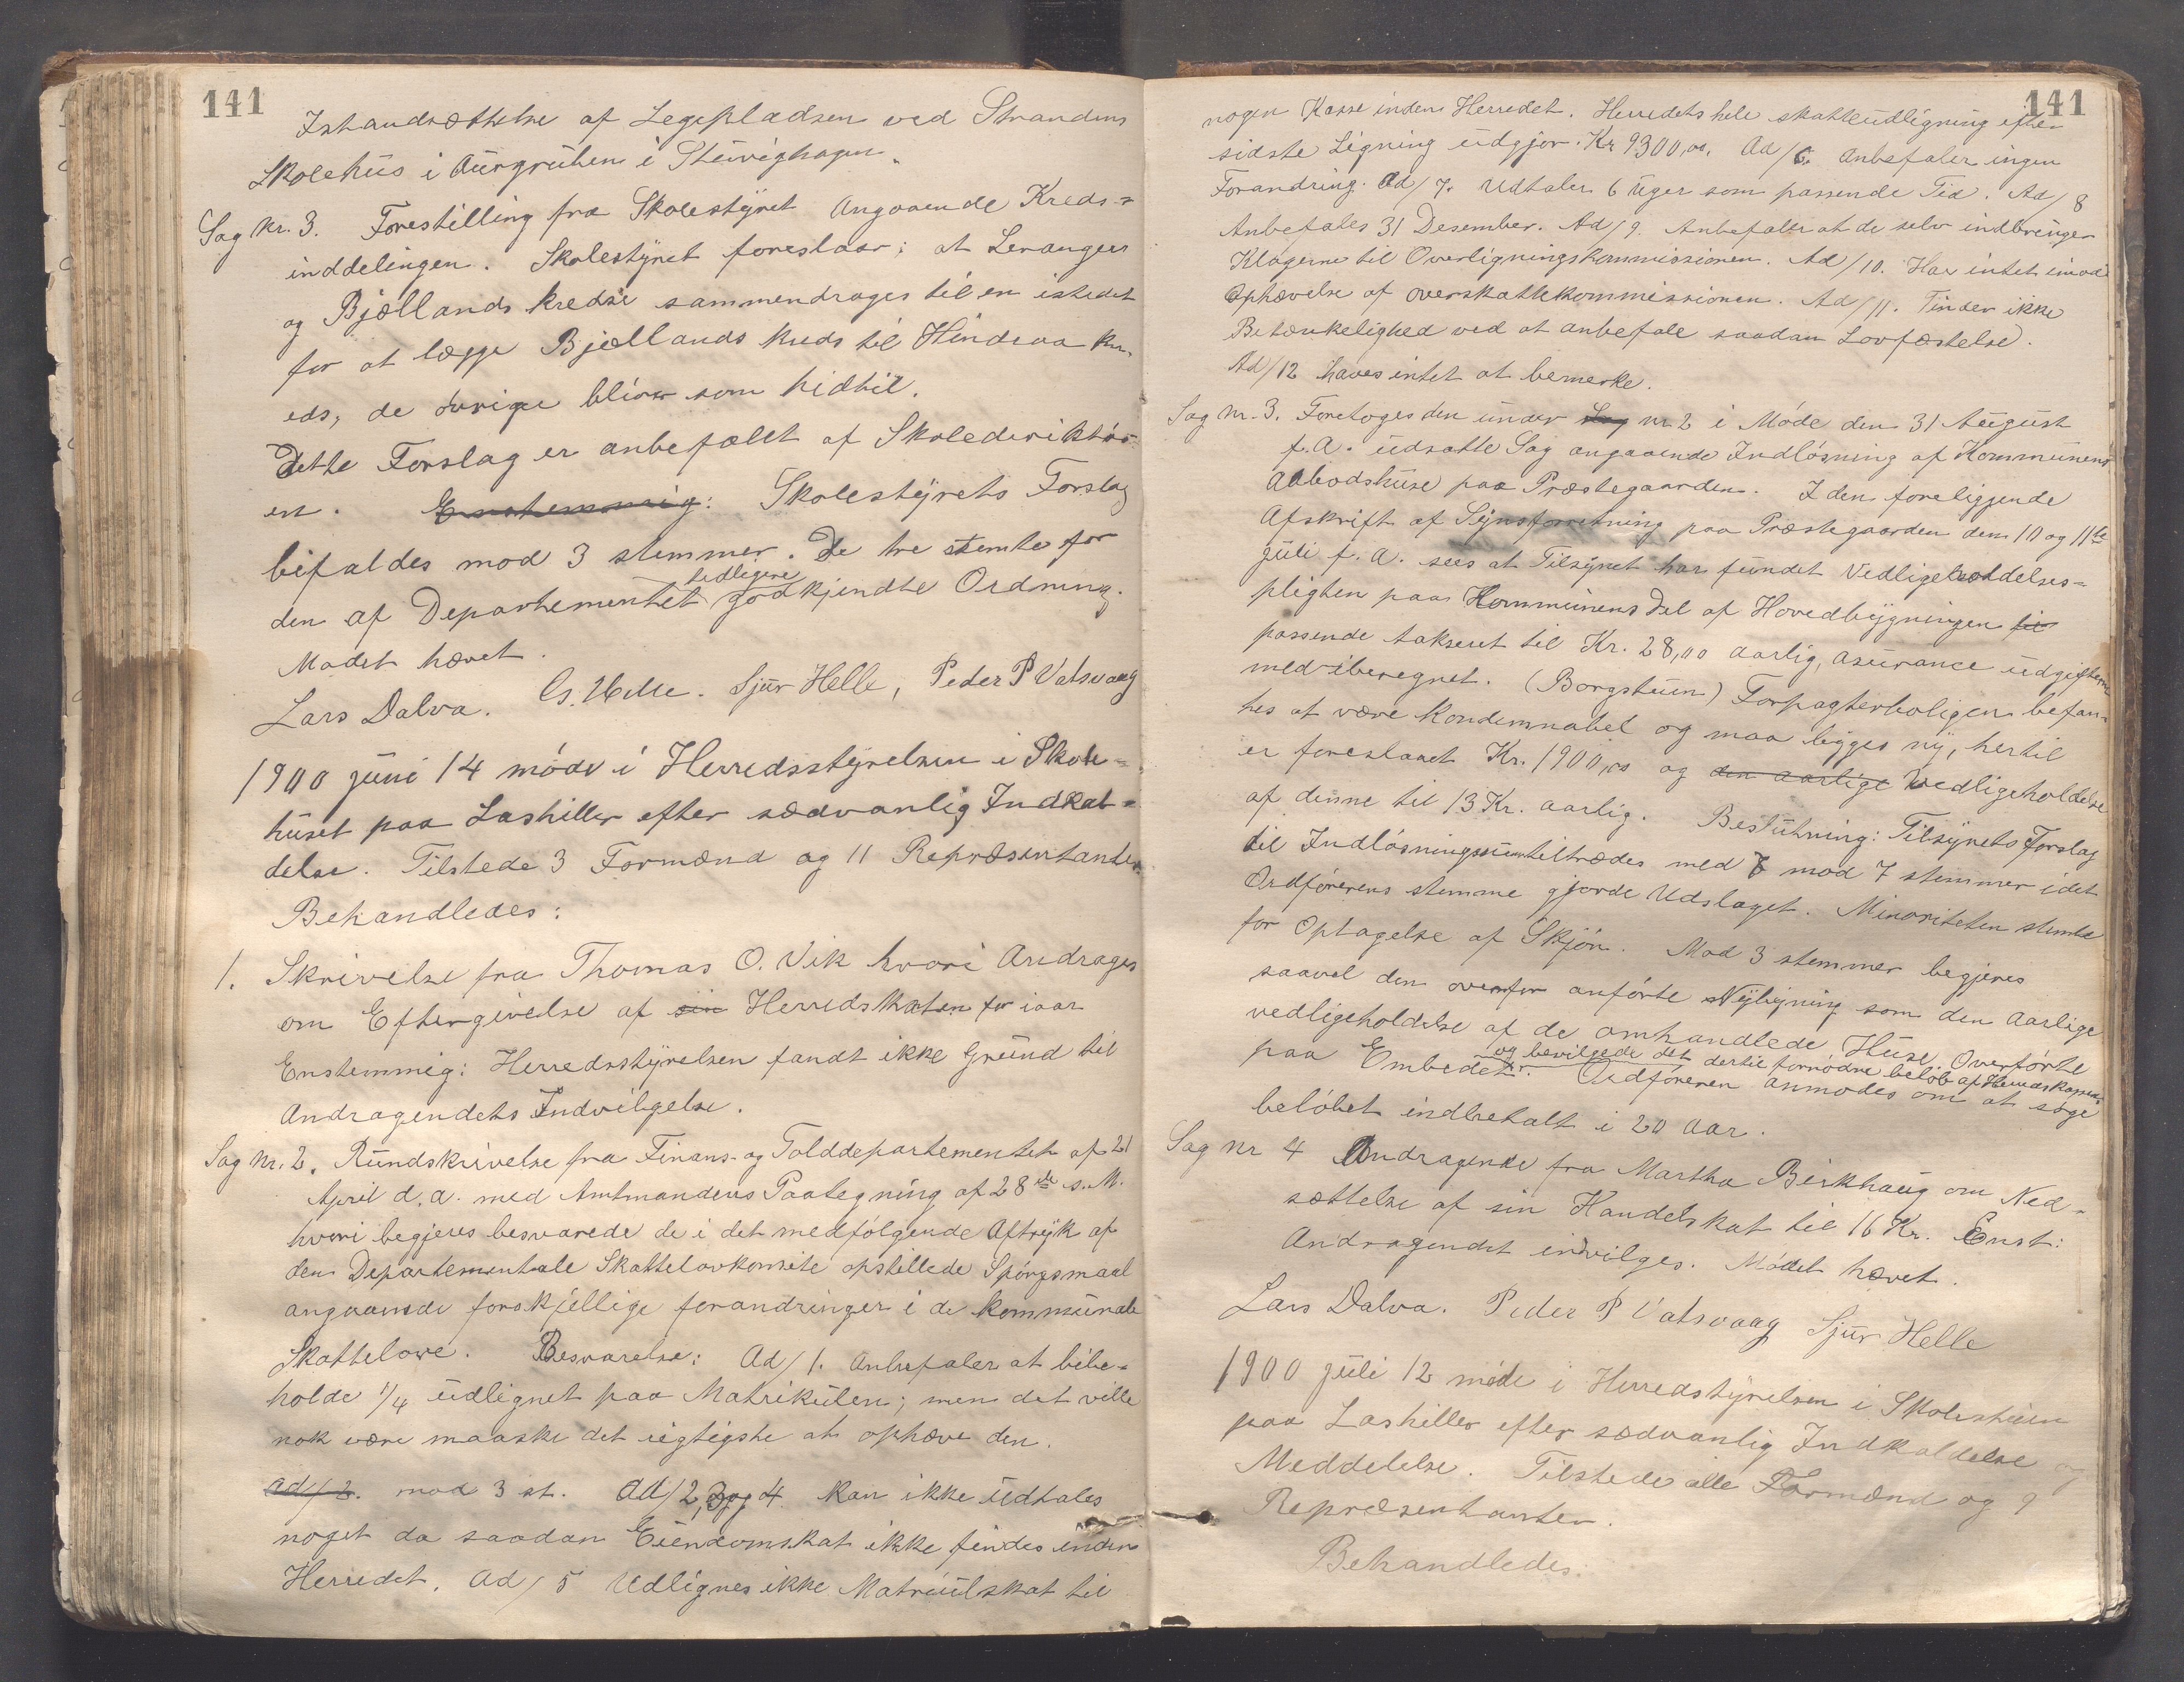 141
Istandsættelse af Legepladsen ved Strandens
Skolehus i Aurgruben i Stuvighagen.
Sag Nr. 3. Forestilling fra Skolestyret angaaende Kreds-
inddelingen. Skolestyret foreslaar; at Leranger
og Bjællands kredse sammendrages til en istedet
for at lægge Bjællands kreds til Hindraa kr-
eds, de øvrige bliver som hidtil.
Dette Forslag er anbefalet af Skoledirektør-
en. Enstemmig: Skolestyrets Forslag
bifaldes mod 3 stemmer. De tre stemte for
den af Departementet tidligere godkjendte Ordning.
Mødet hævet.
Lars Dalva. Sjur Helle, Peder P Vatsvaag
1900 juni 14 møde i Herredsstyrelsen i Skole-
huset paa Lashiller efter sædvanlig Indkal-
delse. Tilstede 3 Formænd og 11 Repræsentanter.
Behandledes:
1. Skrivelse fra Thomas O. Vik hvori Andrages
om Eftergivelse af sin Herredskatten for iaar
Enstemmig: Herredsstyrelsen fandt ikke Grund til
Andragendets Indvilgelse.
Sag Nr. 2. Rundskrivelse fra Finans- og Tolddepartementet af 21
April d. a. med Amtmandens Paategning af 28de s. M.
hvori begjeres besvarede de i det medfølgende Aftryk af
den Departementale Skattelovkomite opstillede Spørgsmaal
angaaende forskjellige forandringer i de kommunale
Skattelove. Besvarelse: Ad/1. Anbefaler at bibe-
holde 1/4 udlignet paa Matrikulen; men det ville
nok være maaske det rigtigste at ophæve den.
ad/2. mod 3 st. Ad/2,3og 4. Kan ikke udtales
noget da saadan Eiendomskat ikke findes inden
Herredet. Ad/5 Udlignes ikke Matriulskat til
141
nogen Kasse inden Herredet. Herredets hele skatteudligning efter
sidste Ligning udgjør. Kr 9300,00. Ad/6. Anbefaler ingen
Forandring. Ad/7. Udtaler 6 Uger som passende Tid. Ad/8
Anbefales 31 Desember. Ad/9. Anbefaler at de selv indbringer
Klagerne til Overligningskommissionen. Ad/10. Har intet imod
Ophævelse af overskattekommissionen. Ad/11. Finder ikke
Betænkelighed ved at anbefale saadan Lovfæstelse.
Ad/12 haves intet at bemerke.
Sag Nr. 3. Foretoges den under Sag nr 2 i Møde den 31 August
f. A. udsatte Sag angaaende Indløsning af Kommunens
Aabodshuse paa Præstegaarden. I den foreliggende
Afskrift af Synsforretning paa Præstegaarden den 10 og 11te
Juli f. A. sees at Tilsynet har fundet Vedligeholdelses-
pligten paa Kommunens Del af Hovedbygningen til
passende takseret til Kr. 28,00 aarlig, asurance udgifterne
med iberegnet. (Borgstuen) Forpagterboligen befan-
hes at være Kondemnabel og maa bygges ny, hertil
er foreslaaet Kr. 1900,00 og den aarlige Vedligeholdelse
af denne til 13 Kr. aarlig. Beslutning: Tilsynets Forslag
til Indløsningssum tiltrædes med 7 mod 7 stemmer idet
Ordførerens stemme gjorde Udslaget. Minoriteten stemte
for Optagelse af Skjøn. Mod 3 stemmer begjeres
saavel den ovenfor anførte Nybygning som den Aarlige
vedligeholdelse af de omhandlede Huse, Overførte
og bevilgede det dertil fornødne beløb af Herredskassen
paa Embedet. Ordføreren anmodes om at søge
beløbet indbetalt i 20 Aar.
Sag Nr 4 Andragende fra Martha Birkhaug om Ned-
sættelse af sin Handelskat til 16 Kr. Enst:
Andragendet indvilges. Mødet hævet.
Lars Dalva. Peder P Vatsvaag Sjur Helle
1900 Juli 12 møde i Herredstyrelsen i Skolestuen
paa Lashiller efter sædvanlig Indkaldelse og
Meddelelse. Tilstede alle Formænd og 9
Repræsentanter.
Behandledes: